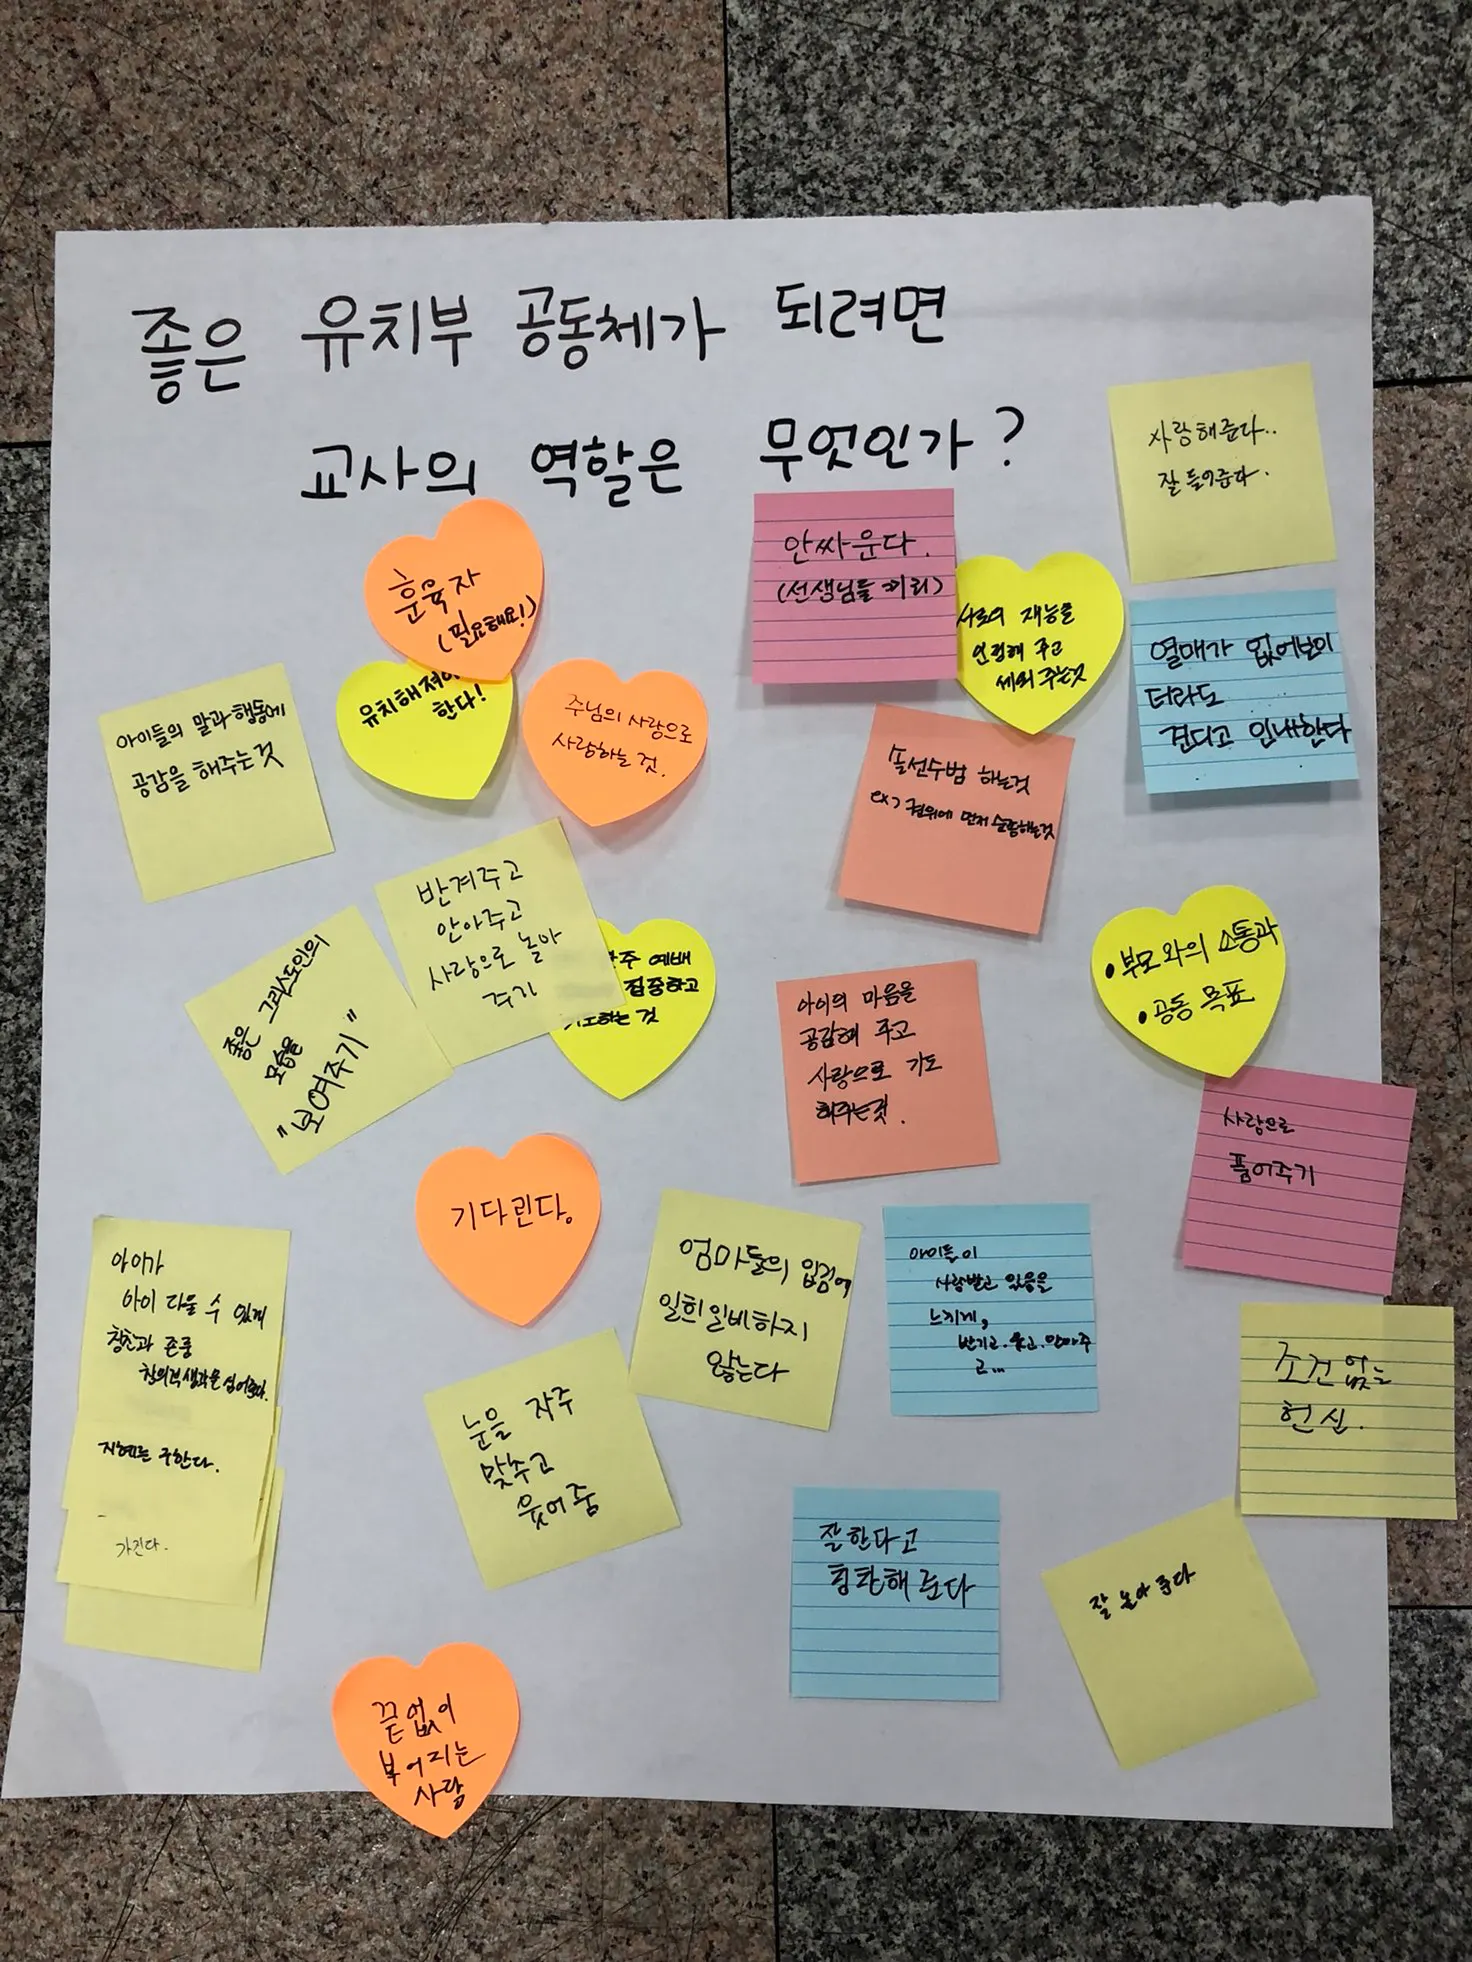 좋은 유치부 공동체가 되려면
교사의 역할은 무엇인가?
사랑해준다..
잘 들어준다.
훈육자
(필요해요!)
안싸운다.
(선생님들 끼리)
서로의 재능을
인정해 주고
세워 주는것
열매가 없어보이
더라도
견디고 인내한다
유치해져야
한다!
주님의 사랑으로
사랑하는 것.
아이들의 말과 행동에
공감을 해주는 것
솔선수범 하는것
ex> 권위에 먼저 순종하는것
반겨주고
안아주고
사랑으로 놀아
주기
좋은 그리스도인의
모습을
"보여주기"
예배
집중하고
기도하는 것
아이의 마음을
공감해 주고
사랑으로 기도
해주는것.
• 부모와의 소통과
• 공동 목표
사랑으로
품어주기
기다린다.
엄마들의 입김에
일희일비하지
않는다
아이들이
사랑받고 있음을
느끼게,
반기고. 웃고. 안아주
고...
아이가
아이 다울 수 있게
칭찬과 존중
창의적 생각을 심어준다.
지혜를 구한다.
가진다.
조건없는
헌신.
눈을 자주
맞추고
웃어줌
잘한다고
칭찬해 준다
잘 놀아 준다
끝없이
부어지는
사랑